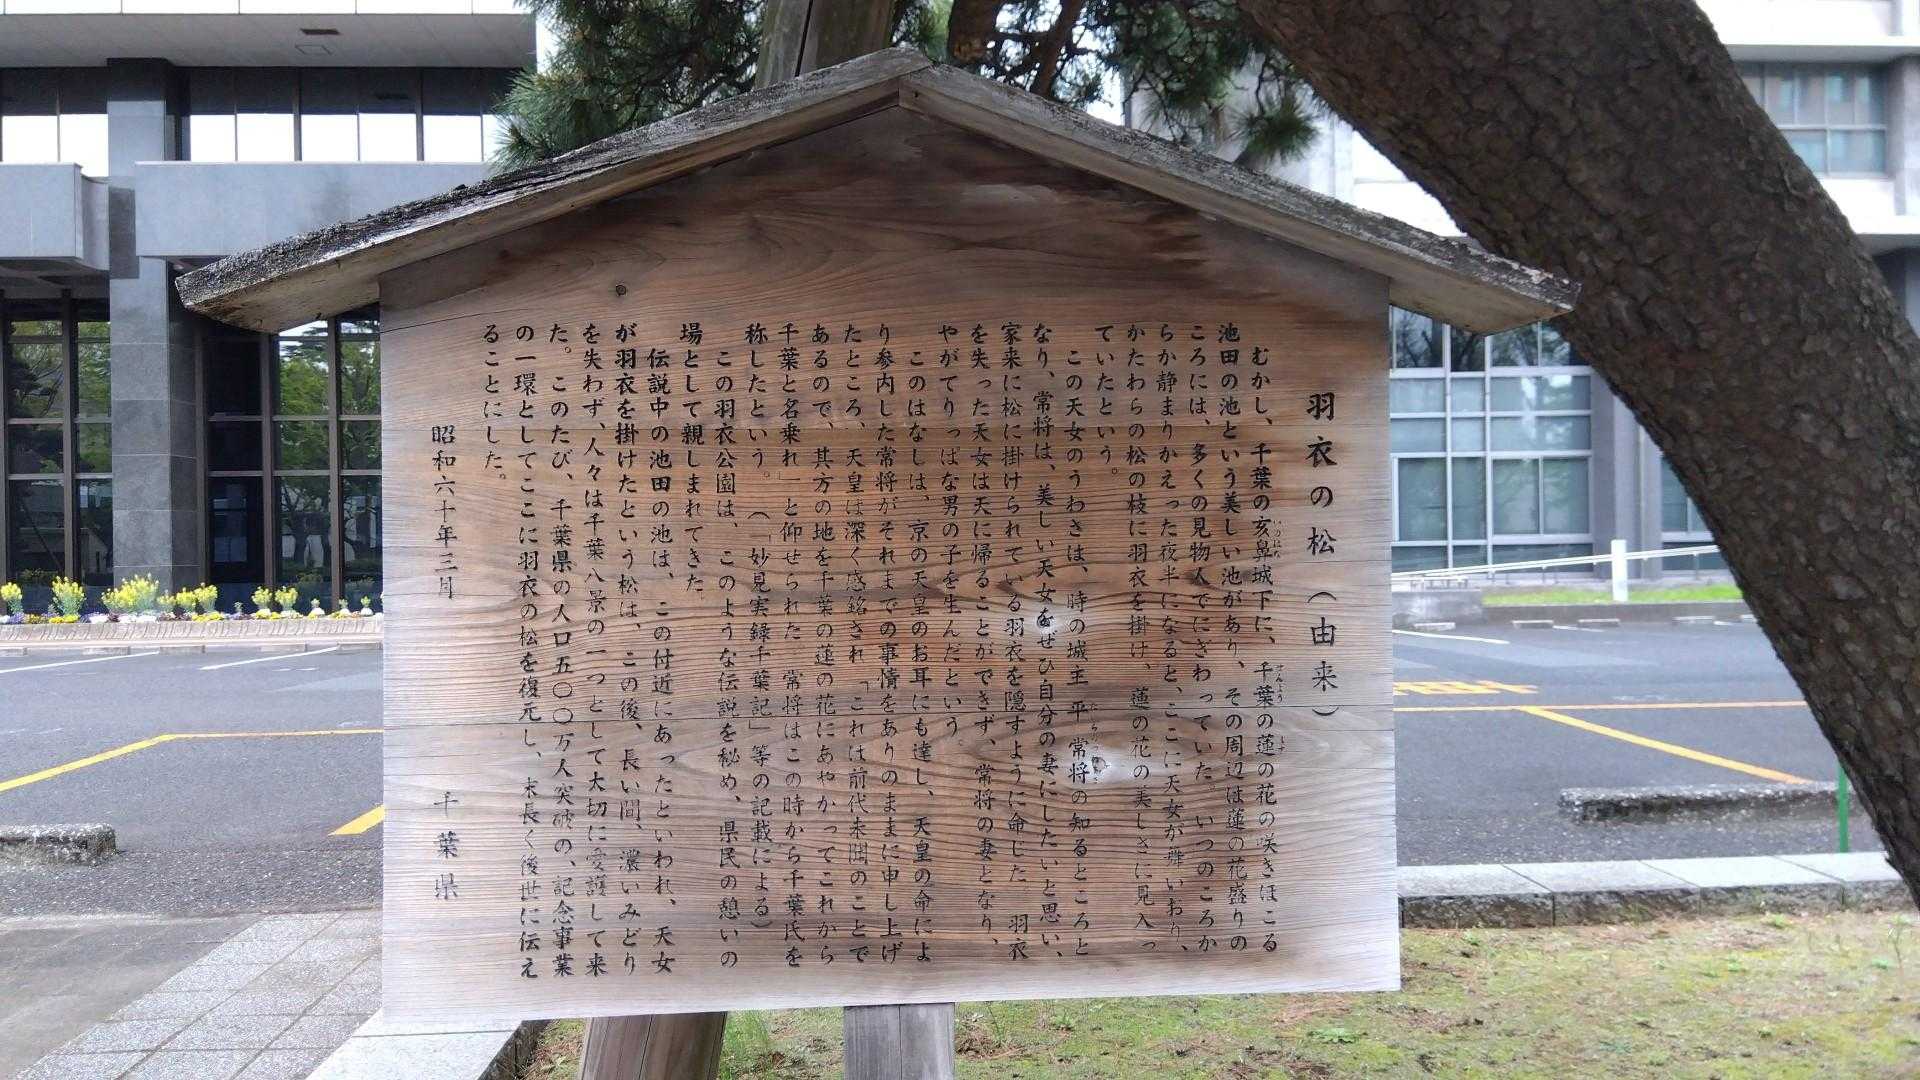 羽衣の松（由来）
むかし、千葉の亥鼻城下に、千葉の蓮の花の咲きほこる
池田の池という美しい池があり、その周辺は蓮の花盛りの
ころには、多くの見物人でにぎわっていた。いつのころか
らか静まりかえった夜半になると、ここに天女が舞いおり、
かたわらの松の枝に羽衣を掛け、蓮の花の美しさに見入っ
ていたという。
この天女のうわさは、時の城主平常将の知るところと
なり、常将は、美しい天女をぜひ自分の妻にしたいと思い、
家来に松に掛けられている羽衣を隠すように命じた 羽衣
を失った天女は天に帰ることができず、常将の妻となり、
やがてりっぱな男の子を生んだという。
このはなしは、京の天皇のお耳にも達し、天皇の命によ
り参内した常将がそれまでの事情をありのままに申し上げ
たところ、天皇は深く感銘され「これは前代未聞のことで
あるので、其方の地を千葉の蓮の花にあやかってこれから
千葉と名乗れ」と仰せられた 常将はこの時から千葉氏を
称したという。（「妙見実録千葉記」等の記載による）
この羽衣公園は、このような伝説を秘め、県民の憩いの
場として親しまれてきた
伝説中の池田の池は、この付近にあったといわれ、天女
が羽衣を掛けたという松は、この後、長い間、濃いみどり
を失わず、人々は千葉八景の一つとして大切に愛護して来
た。このたび、千葉県の人口五〇〇万人突破の、記念事業
の一環としてここに羽衣の松を復元し、末長く後世に伝え
ることにした。
昭和六十年三月
千葉県